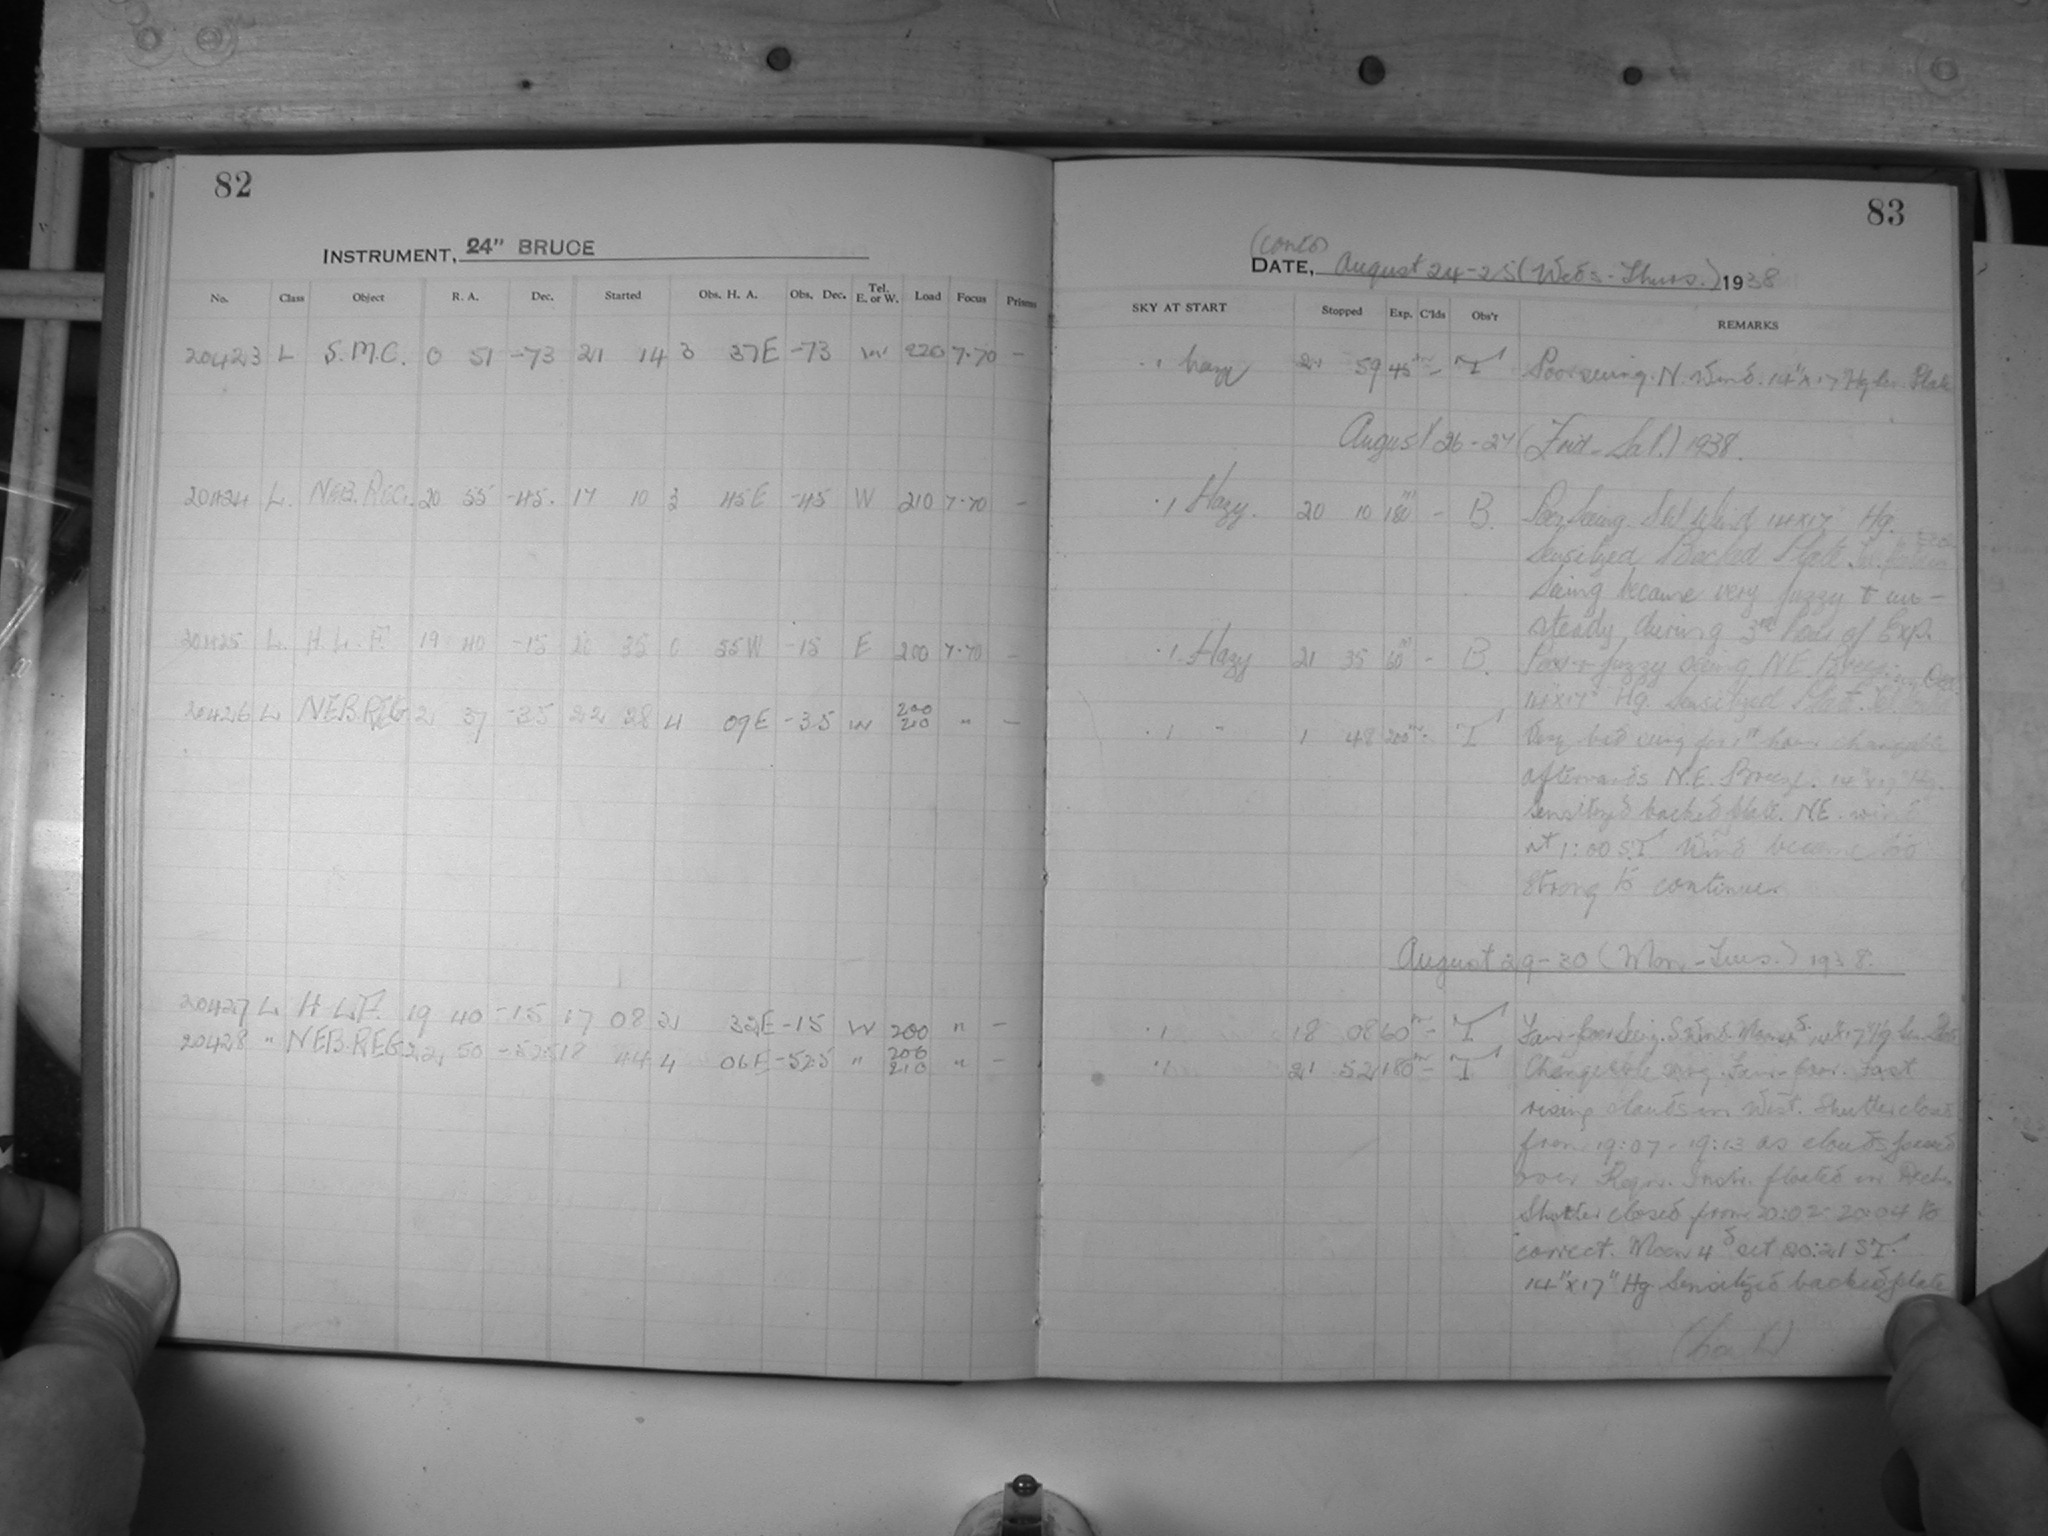 82
INSTRUMENT, 24" BRUCE
No. Class Object R. A. Dec. Started Obs. H. A. Obs. Dec. Tel. E. or W. Load Focus Prisms
20423 L S.M.C. 0 51 -73 21 14 3 37E -73 W 220 7.70 -
20424 L. NEB. REG. 20 55 -45. 17 10 3 45E -45 W 210 7.70 -
20425 L. H. L. F. 19 40 -15 20 35 0 55W -15 E 200 7.70 -
20426 L NEB.REG 2 37 -35 22 28 4 09E -35 W 200 210 " -
20427 L H L F. 19 40 -15 17 08 2 32E -15 W 200 " -
20428 " NEB.REG 22 50 -52.5 18 44 4 06E -52.5 " 200 210 " -
83
(contd)
DATE, August 24-25 (Weds-Thurs.) 1938
SKY AT START Stopped Exp. C'lds Obs'r REMARKS
.1 hazy 21 59 45m - T Poor seeing. N. Wind. 14"x17" Hg Sen. Plate
August 26-27 (Frid-Sat.) 1938.
.1 Hazy. 20 10 180m - B. Poor Seeing. SW Wind 14x17 Hg.
Sensitized Backed Plate.
Seeing became very fuzzy & un-
steady during 3rd hour of Exp.
.1 Hazy 21 35 60m - B. Poor & fuzzy seeing NE Breeze.
14"x17" Hg. Sensitized Plate.
.1 " 1 48 200m - T Very bad seeing for 1st hour changeable
afterwards N.E. Breeze. 14"x17" Hg.
Sensitized backed plate. NE. wind
at 1:00 S.T. Wind became too
strong to continue.
August 29-30 (Mon-Tues.) 1938.
.1 18 08 60m - T Fair-poor seeing. S Wind. Moon 4d. 14"x17" Hg Sen Plate
.1 21 52 180m - T Changeable seeing. Fair-poor. Fast
rising clouds in West. Shutter closed
from 19:07-19:13 as clouds passed
over Region. Instr. floated in Decln.
Shutter closed from 20:02-20:04 to
correct. Moon 4d set 20:21 S.T.
14"x17" Hg Sensitized backed plate